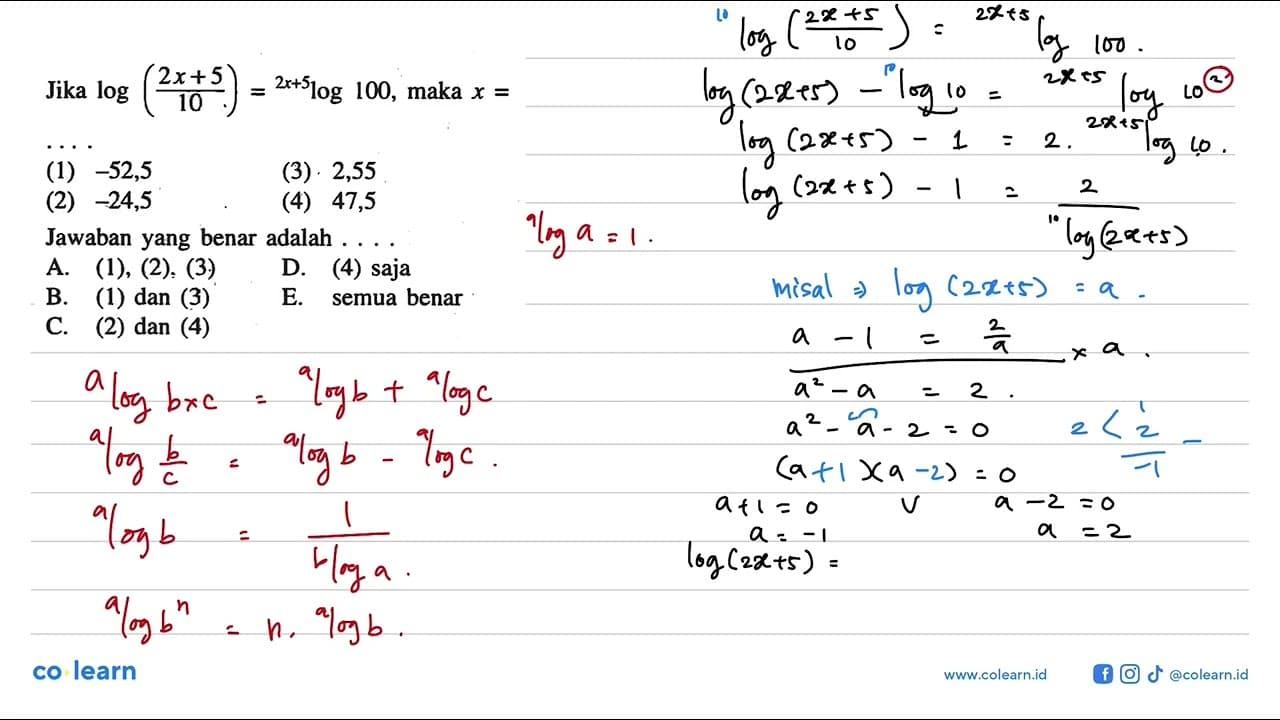 Jika log ((2x+5)/10) = ^{2x+5}log 100, maka x =
....
(1) –52,5 (3) 2,55
(2) –24,5 (4) 47,5
Jawaban yang benar adalah ....
A. (1), (2), (3) D. (4) saja
B. (1) dan (3) E. semua benar
C. (2) dan (4)
^a log b×c = ^a log b + ^a log c
^a log b/c = ^a log b - ^a log c.
^a log b = 1/(^b log a).
^a log b^n = n. ^a log b.
^a log a = 1.
^{10} log ((2x+5)/10) = ^{2x+5} log 100.
log (2x+5) - ^{10} log 10 = ^{2x+5} log 10^2
log (2x+5) - 1 = 2. ^{2x+5} log 10.
log (2x+5) - 1 = 2/(^{10} log (2x+5))
misal ⇒ log (2x+5) = a.
a - 1 = 2/a × a.
a² - a = 2.
a² - a - 2 = 0 2 < 1 2 -
-1
(a+1)(a-2) = 0
a+1 = 0 v a-2 = 0
a = -1 a = 2
log (2x+5) =
co learn
www.colearn.id @colearn.id